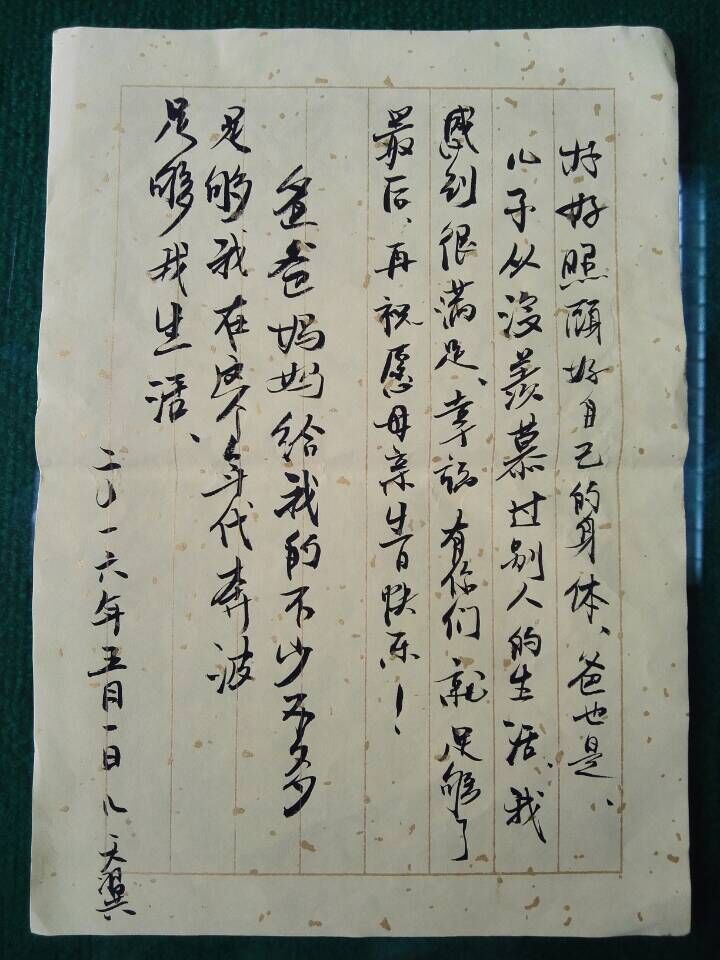 好好照顾好自己的身体、爸也是、
儿子从没羡慕过别人的生活、我
感到很满足、幸福有你们就足够了
最后、再祝愿母亲生日快乐！
爸爸妈妈给我的不少不多
足够我在这个年代奔波
足够我生活、
二〇一六年五月一日 儿 天翼